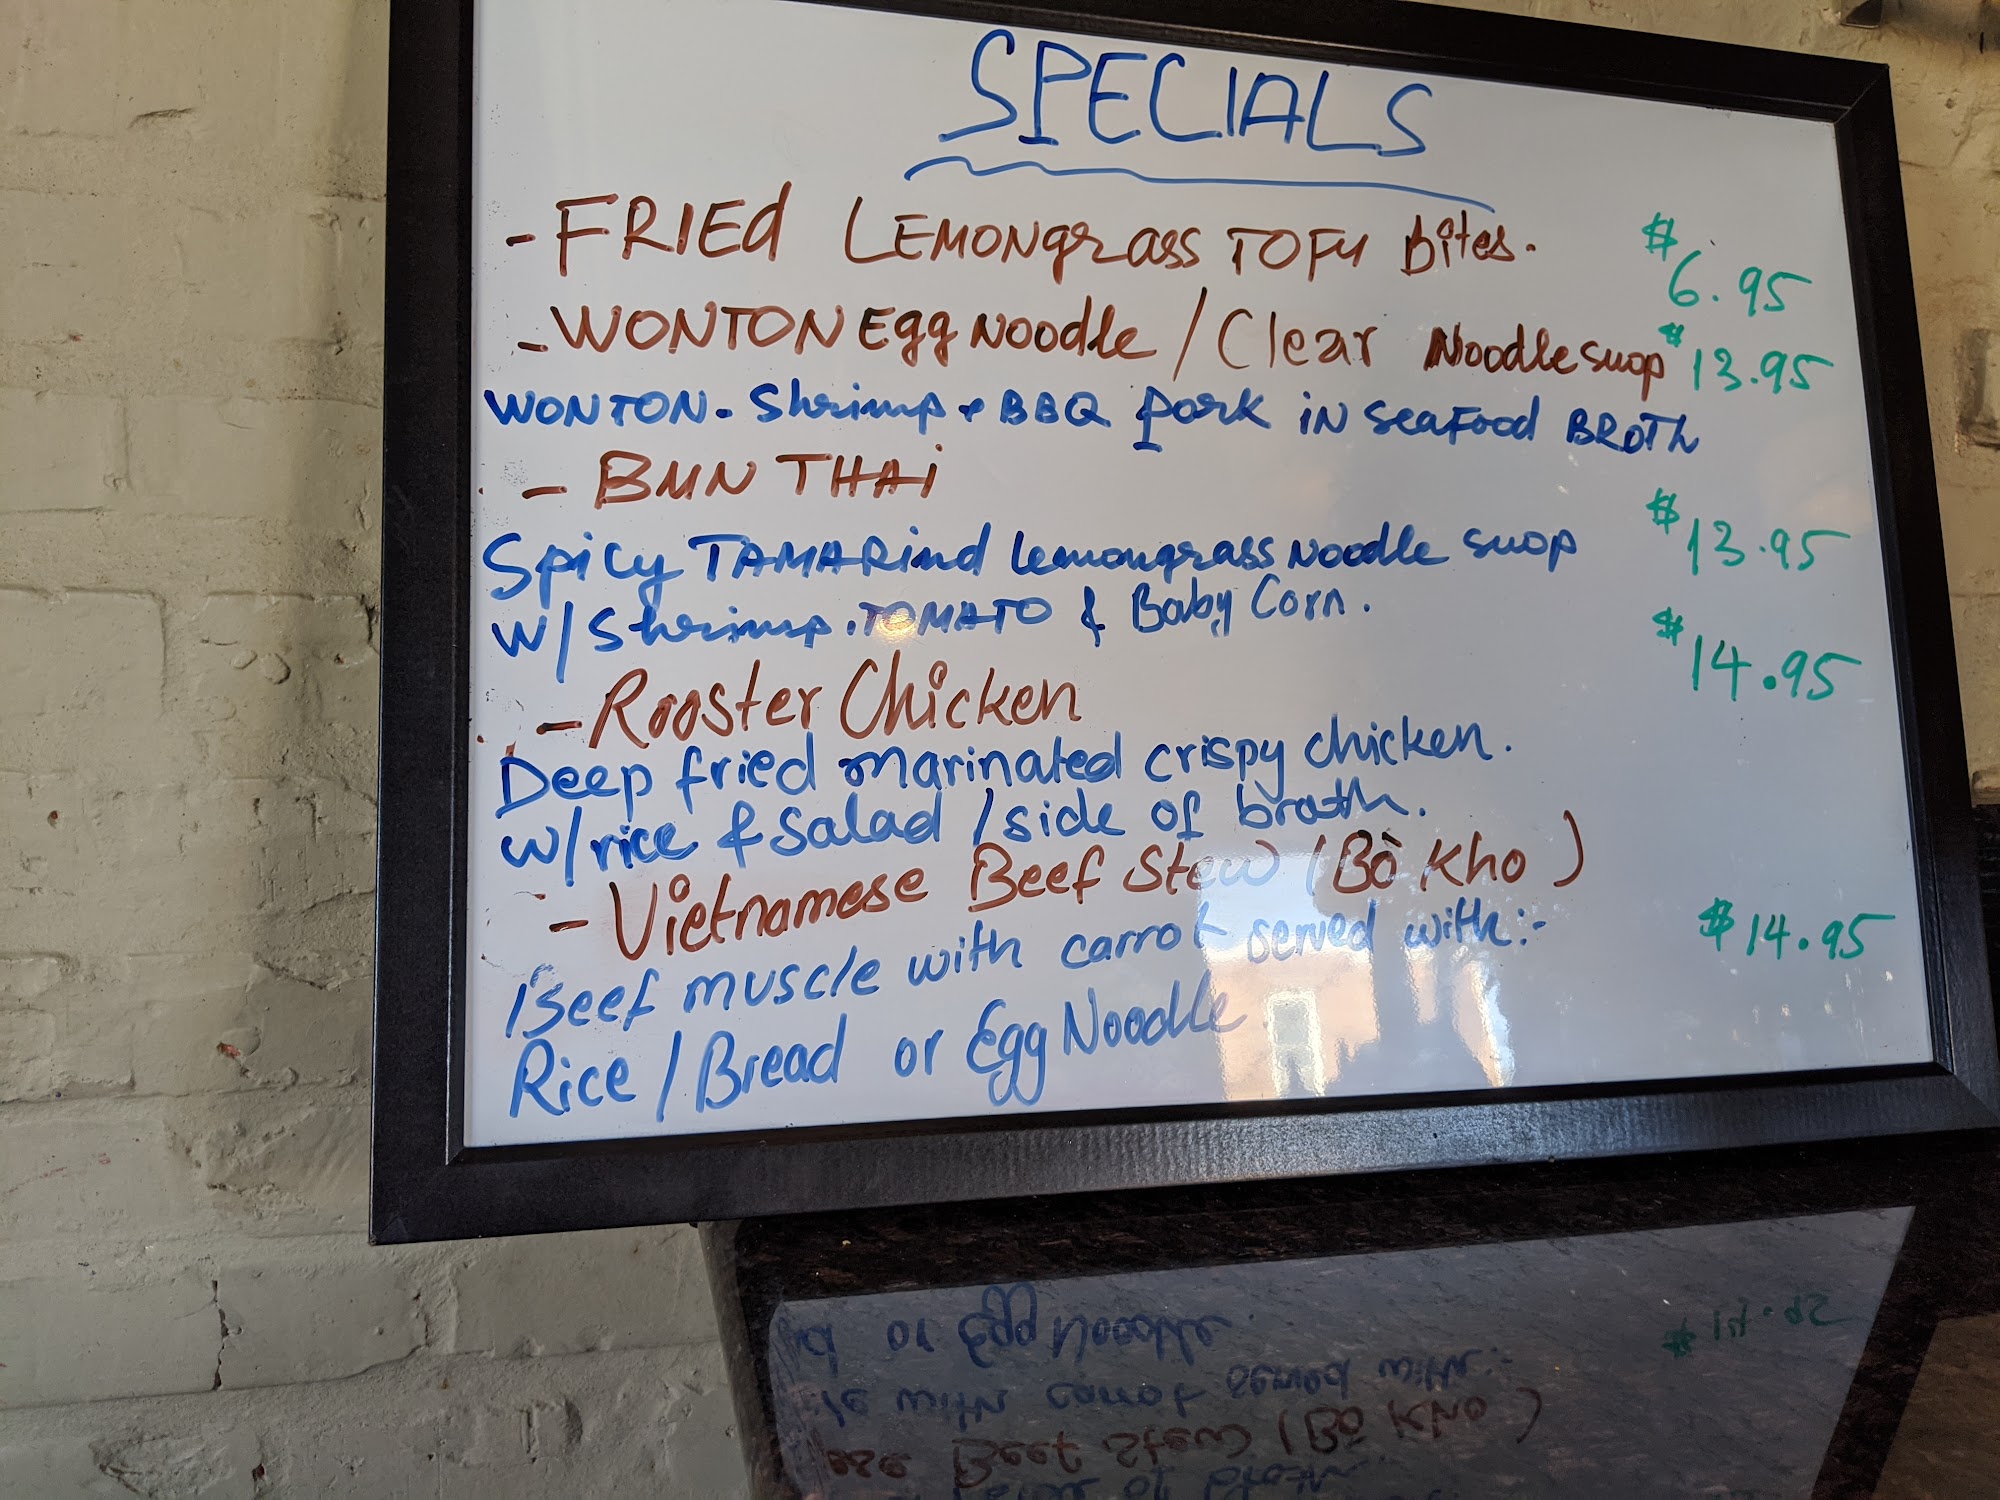 SPECIALS
- FRIEd LEMONgrass TOFU Bites. $6.95
- WONTON Egg Noodle / Clear Noodle suop $13.95
WONTON. Shrimp + BBQ pork iN SeaFood BROTh
- BUN THAi
Spicy TAMARind lemongrass Noodle suop $13.95
W/ Shrimp. TOMATO & Baby Corn.
- Rooster Chicken $14.95
Deep fried marinated crispy chicken.
w/ rice & salad / side of broth.
- Vietnamese Beef Stew (Bò Kho)
Beef muscle with carrot served with:- $14.95
Rice / Bread or Egg Noodle